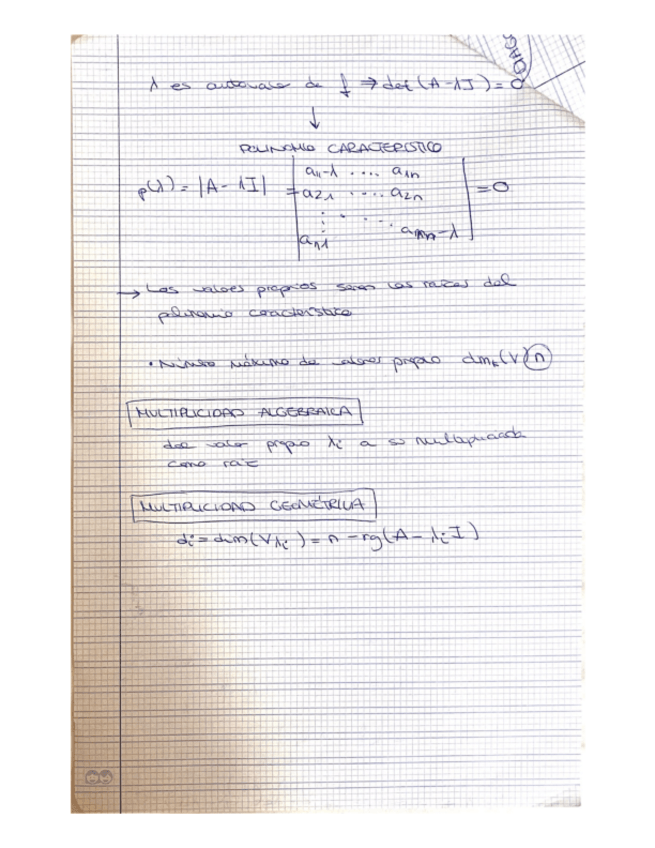 λ es autovalor de f ⇒ det (A-λI) = 0
↓
POLINOMIO CARACTERÍSTICO
p(λ) = |A - λI| = | a11-λ .... a1n | = 0
a21 .... a2n
⋮ . . ...
an1 ann-λ
→ Los valores propios seran las raices del
polinomio caracteristico
• Número máximo de valores propio dimk(V) n
MULTIPLICIDAD ALGEBRAICA
del valor propio λi a su multiplicidad
como raiz
MULTIPLICIDAD GEOMÉTRICA
di = dim(Vλi) = n - rg(A - λiI)